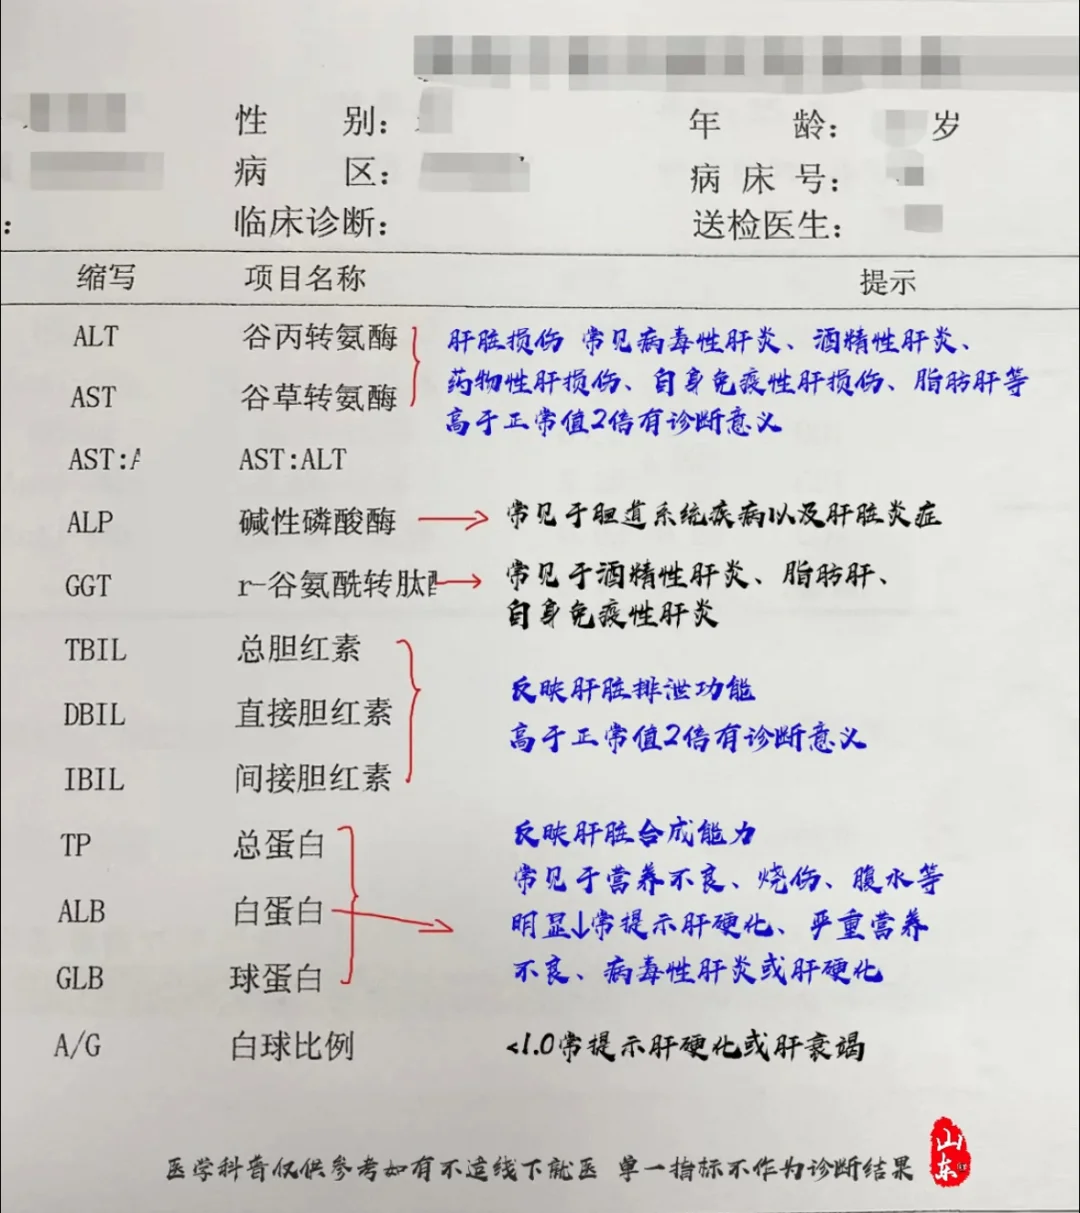 性 别:
年 龄: 岁
病 区:
病 床 号:
:
临床诊断:
送检医生:
缩写 项目名称 提示
ALT 谷丙转氨酶
AST 谷草转氨酶
肝脏损伤 常见病毒性肝炎、酒精性肝炎、
药物性肝损伤、自身免疫性肝损伤、脂肪肝等
高于正常值2倍有诊断意义
AST:A AST:ALT
ALP 碱性磷酸酶 常见于胆道系统疾病以及肝脏炎症
GGT r-谷氨酰转肽酶 常见于酒精性肝炎、脂肪肝、
自身免疫性肝炎
TBIL 总胆红素
DBIL 直接胆红素
IBIL 间接胆红素
反映肝脏排泄功能
高于正常值2倍有诊断意义
TP 总蛋白
ALB 白蛋白
GLB 球蛋白
反映肝脏合成能力
常见于营养不良、烧伤、腹水等
明显↓常提示肝硬化、严重营养
不良、病毒性肝炎或肝硬化
A/G 白球比例 <1.0常提示肝硬化或肝衰竭
医学科普仅供参考如有不适线下就医 单一指标不作为诊断结果
山东